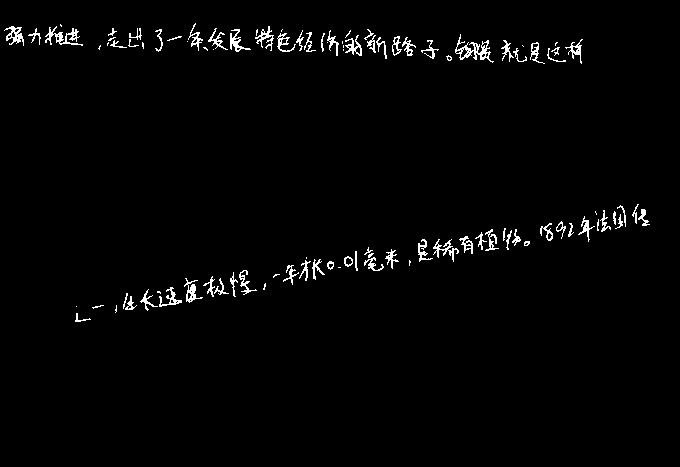 强力推进，走出了一条发展特色经济的新路子。钢银就是这样
之一，生长速度极慢，一年长0.01毫米，是稀有植物。1892年法国传